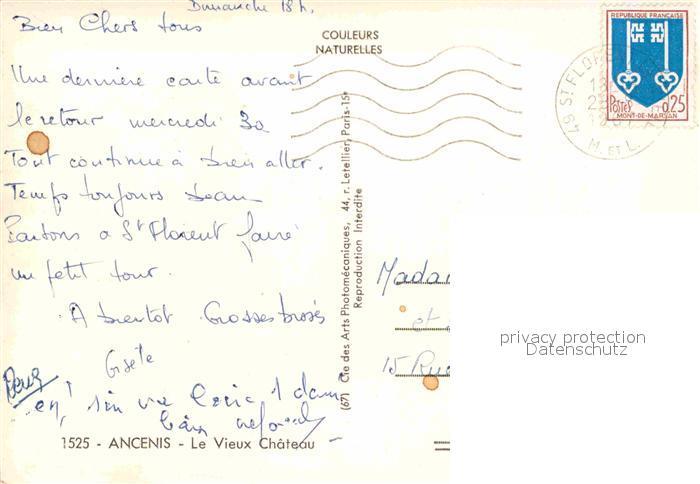 Dimanche 18 h.
Bien Chers tous
Une dernière carte avant
le retour mercredi 30
Tout continue à bien aller.
Temps toujours beau
Partons a St Florent faire
un petit tour.
A bientot Grosses bises
Gisèle
COULEURS
NATURELLES
(67) Cie des Arts Photomécaniques, 44, r. Letellier, Paris-15e
Reproduction Interdite
1525 - ANCENIS - Le Vieux Château
REPUBLIQUE FRANÇAISE
POSTES 0,25
MONT-DE-MARSAN
49 ST FLORE
M. ET L.
Mada
et
15 Rue
privacy protection
Datenschutz